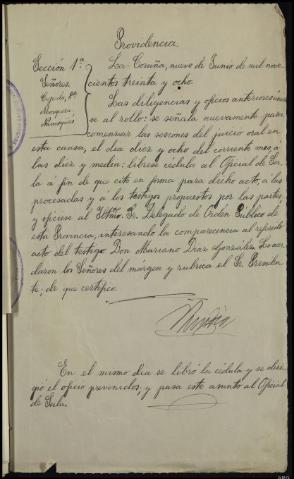 Providencia
Sección 1ª. La Coruña, nueve de Junio de mil nove
Señores cientos treinta y ocho.
Tejada, Pte
Las diligencias y oficios anteriores únan
se al rollo: se señala nuevamente para
comenzar las sesiones del juicio oral en
esta causa, el día diez y ocho del corriente mes a
las diez y media: líbrese cédula al Oficial de Sa
la a fin de que cite en forma para dicho acto, a los
procesados y a los testigos propuestos por las partes
y ofíciese al Iltmo. Sr. Delegado de Orden Público de
esta Provincia, interesando la comparecencia al referido
acto del testigo Don Mariano Díaz González. Lo acor
daron los Señores del márgen y rubrica el Sr. Presiden
te, de que certifico.
En el mismo día se libró la cédula y se diri
gió el oficio prevenidos, y pasa este asunto al Oficial
de Sala.